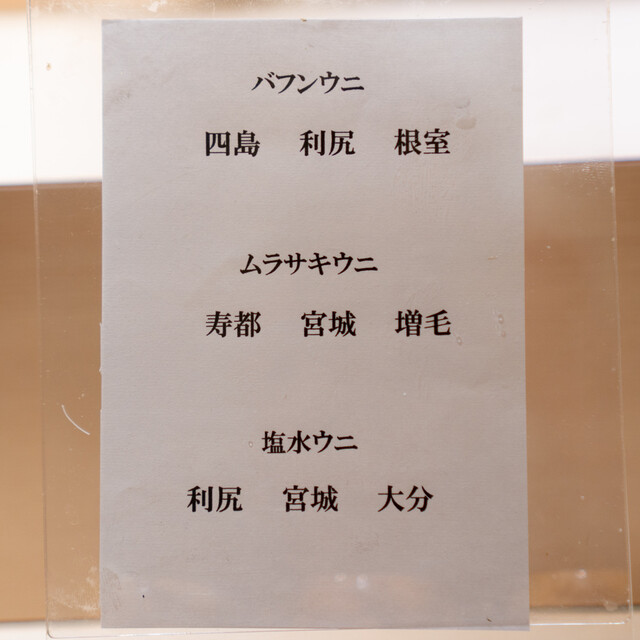 バフンウニ
四島 利尻 根室
ムラサキウニ
寿都 宮城 増毛
塩水ウニ
利尻 宮城 大分